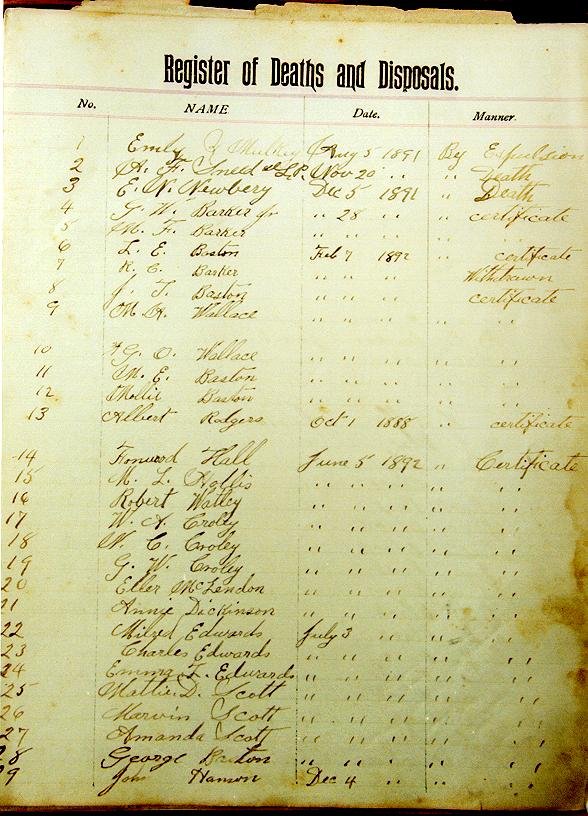 Register of Deaths and Disposals.
No. NAME Date. Manner.
1 Emily Mulkey Aug 5 1891 By Expulsion
2 A. F. Sneed Nov 20 " " " Death
3 E. N. Newbery Dec 5 1891 " Death
4 G. W. Barker Jr " 28 " " " certificate
5 M. F. Barker " " " " "
6 L. E. Baston Feb 7 1892 " certificate
7 R. E. Barker " " " " Withdrawn
8 J. T. Baston " " " " certificate
9 M. A. Wallace " " " " " " "
10 G. O. Wallace " " " " " " "
11 M. E. Baston " " " " " " "
12 Mollie Baston " " " " " " "
13 Albert Rodgers Oct 1 1888 " certificate
14 Hall June 5 1892 " Certificate
15 M. L. Hollis " " " " " " "
16 Robert Watley " " " " " " "
17 W. A. Croley " " " " " " "
18 N. C. Croley " " " " " " "
19 G. W. Croley " " " " " " "
20 Eller McLendon " " " " " " "
21 Annie Dickinson " " " " " " "
22 Milzed Edwards July 3 " " " " "
23 Charles Edwards " " " " " " "
24 Emma L. Edwards " " " " " " "
25 Mattie D. Scott " " " " " " "
26 Marvin Scott " " " " " " "
27 Amanda Scott " " " " " " "
28 George Baston " " " " " " "
29 Hamon Dec 4 " " " " "